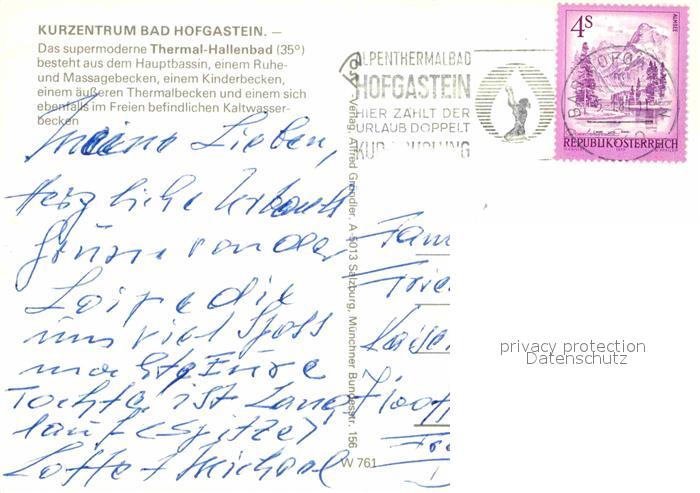 KURZENTRUM BAD HOFGASTEIN. —
Das supermoderne Thermal-Hallenbad (35°)
besteht aus dem Hauptbassin, einem Ruhe-
und Massagebecken, einem Kinderbecken,
einem äußeren Thermalbecken und einem sich
ebenfalls im Freien befindlichen Kaltwasser-
becken
Meine Lieben,
Herzliche Urlaub
Grüsse von der
Loipe die
uns viel Spass
macht Eure
Tochter ist Lang
lauf (Spitze)
Lotte + Michael
Verlag Alfred Gründler, A-5013 Salzburg, Münchner Bundesstr. 156
W 761
ALPENTHERMALBAD
HOFGASTEIN
HIER ZÄHLT DER
URLAUB DOPPELT
4S
ALMSEE
REPUBLIK ÖSTERREICH
Fam
Frie
Kaiser
privacy protection
Datenschutz